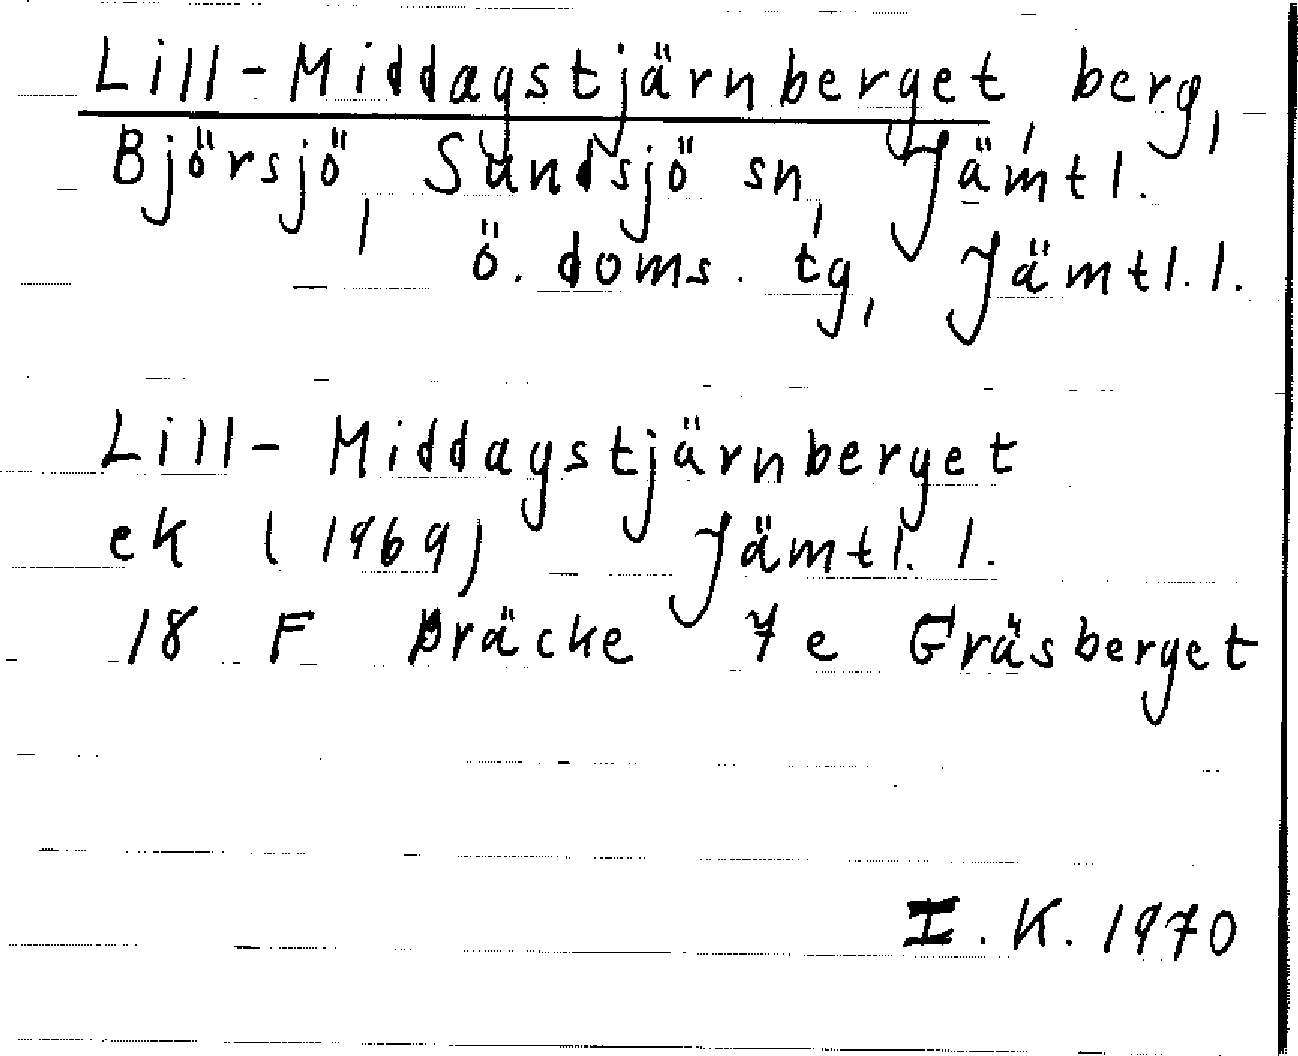 Lill-Middagstjärnberget, berg,
Björsjö, Sundsjö sn, Jämtl.
ö. doms. tg, Jämtl. l.
Lill-Middagstjärnberget
ek (1969) Jämtl. l.
18 F Bräcke 7e Gräsberget
I. K. 1970